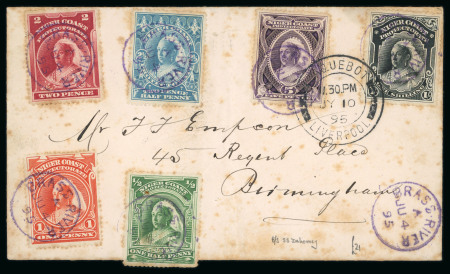 2 NIGER COAST PROTECTORATE 2
TWO PENCE
NIGER COAST PROTECTORATE
TWO PENCE HALF PENNY
NIGER COAST PROTECTORATE
5
NIGER COAST PROTECTORATE
1 SHILLING
PAQUEBOT
1.30.PM
JY 10
95
LIVERPOOL
Mr F J Empson
45 Regent Place
Birmingham
NIGER COAST PROTECTORATE
1 ONE PENNY 1
BRASS RIVER
95
½ ½
NIGER COAST PROTECTORATE
ONE HALF PENNY
BRASS RIVER
A
JU 4
95
p/s SS Dahomey